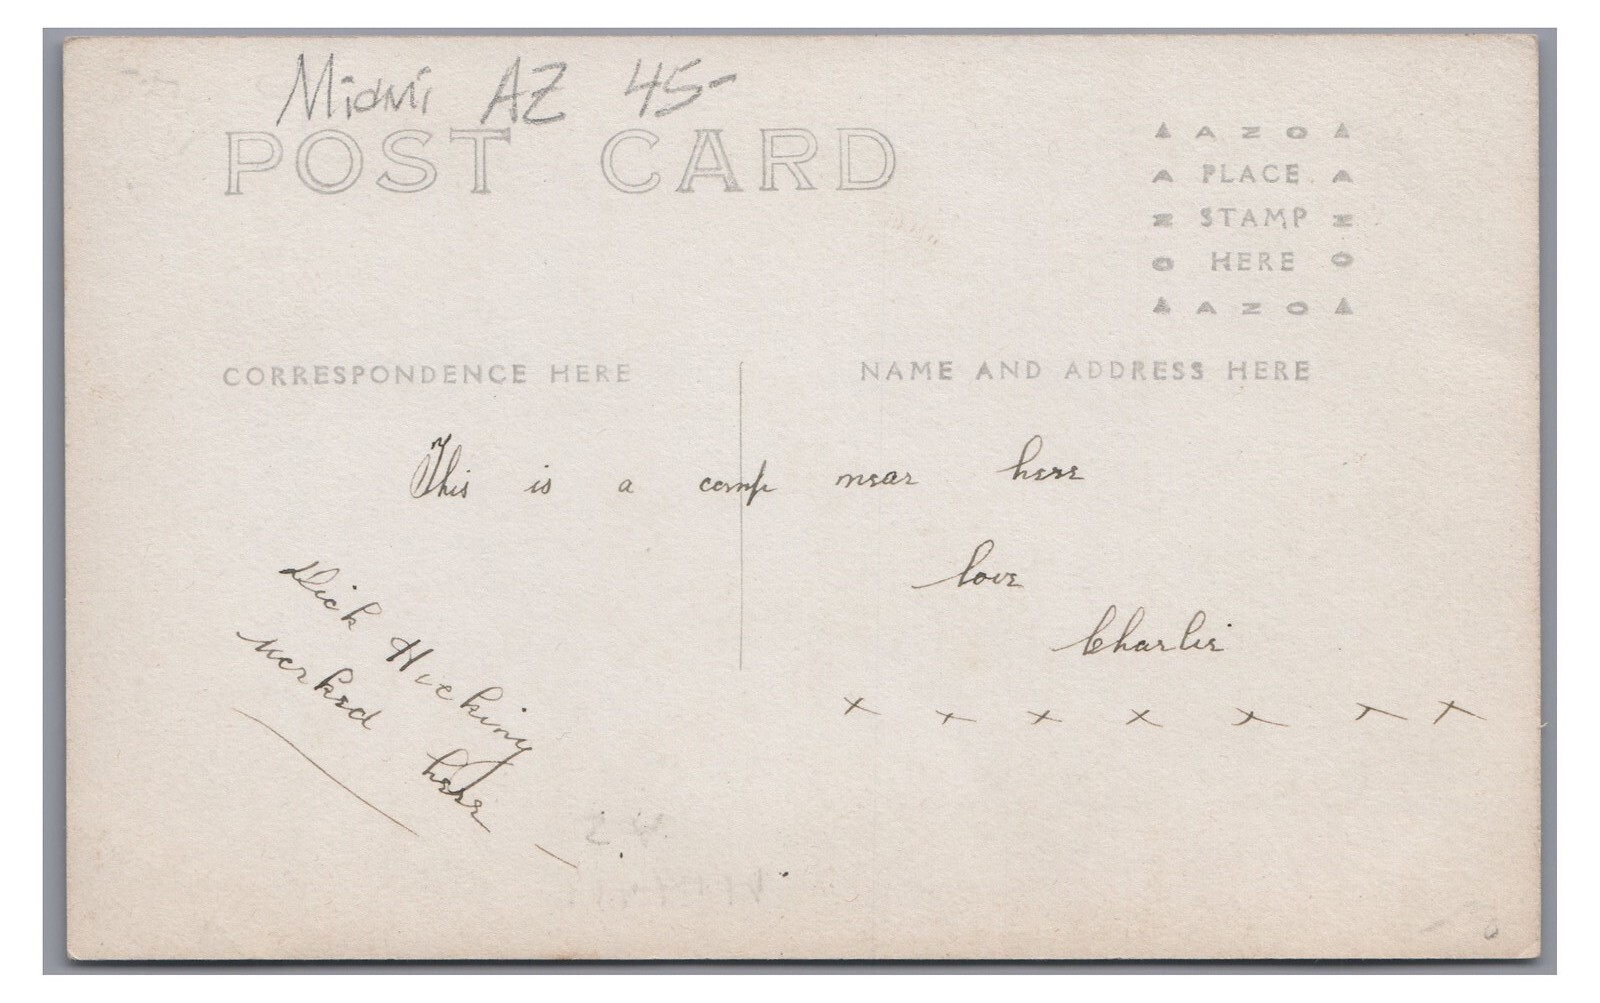 Miami AZ 45-
POST CARD
AZO
PLACE
STAMP
HERE
AZO
CORRESPONDENCE HERE
NAME AND ADDRESS HERE
This is a camp near here
love
Charlie
x x x x x x x
Dick Hocking
worked here